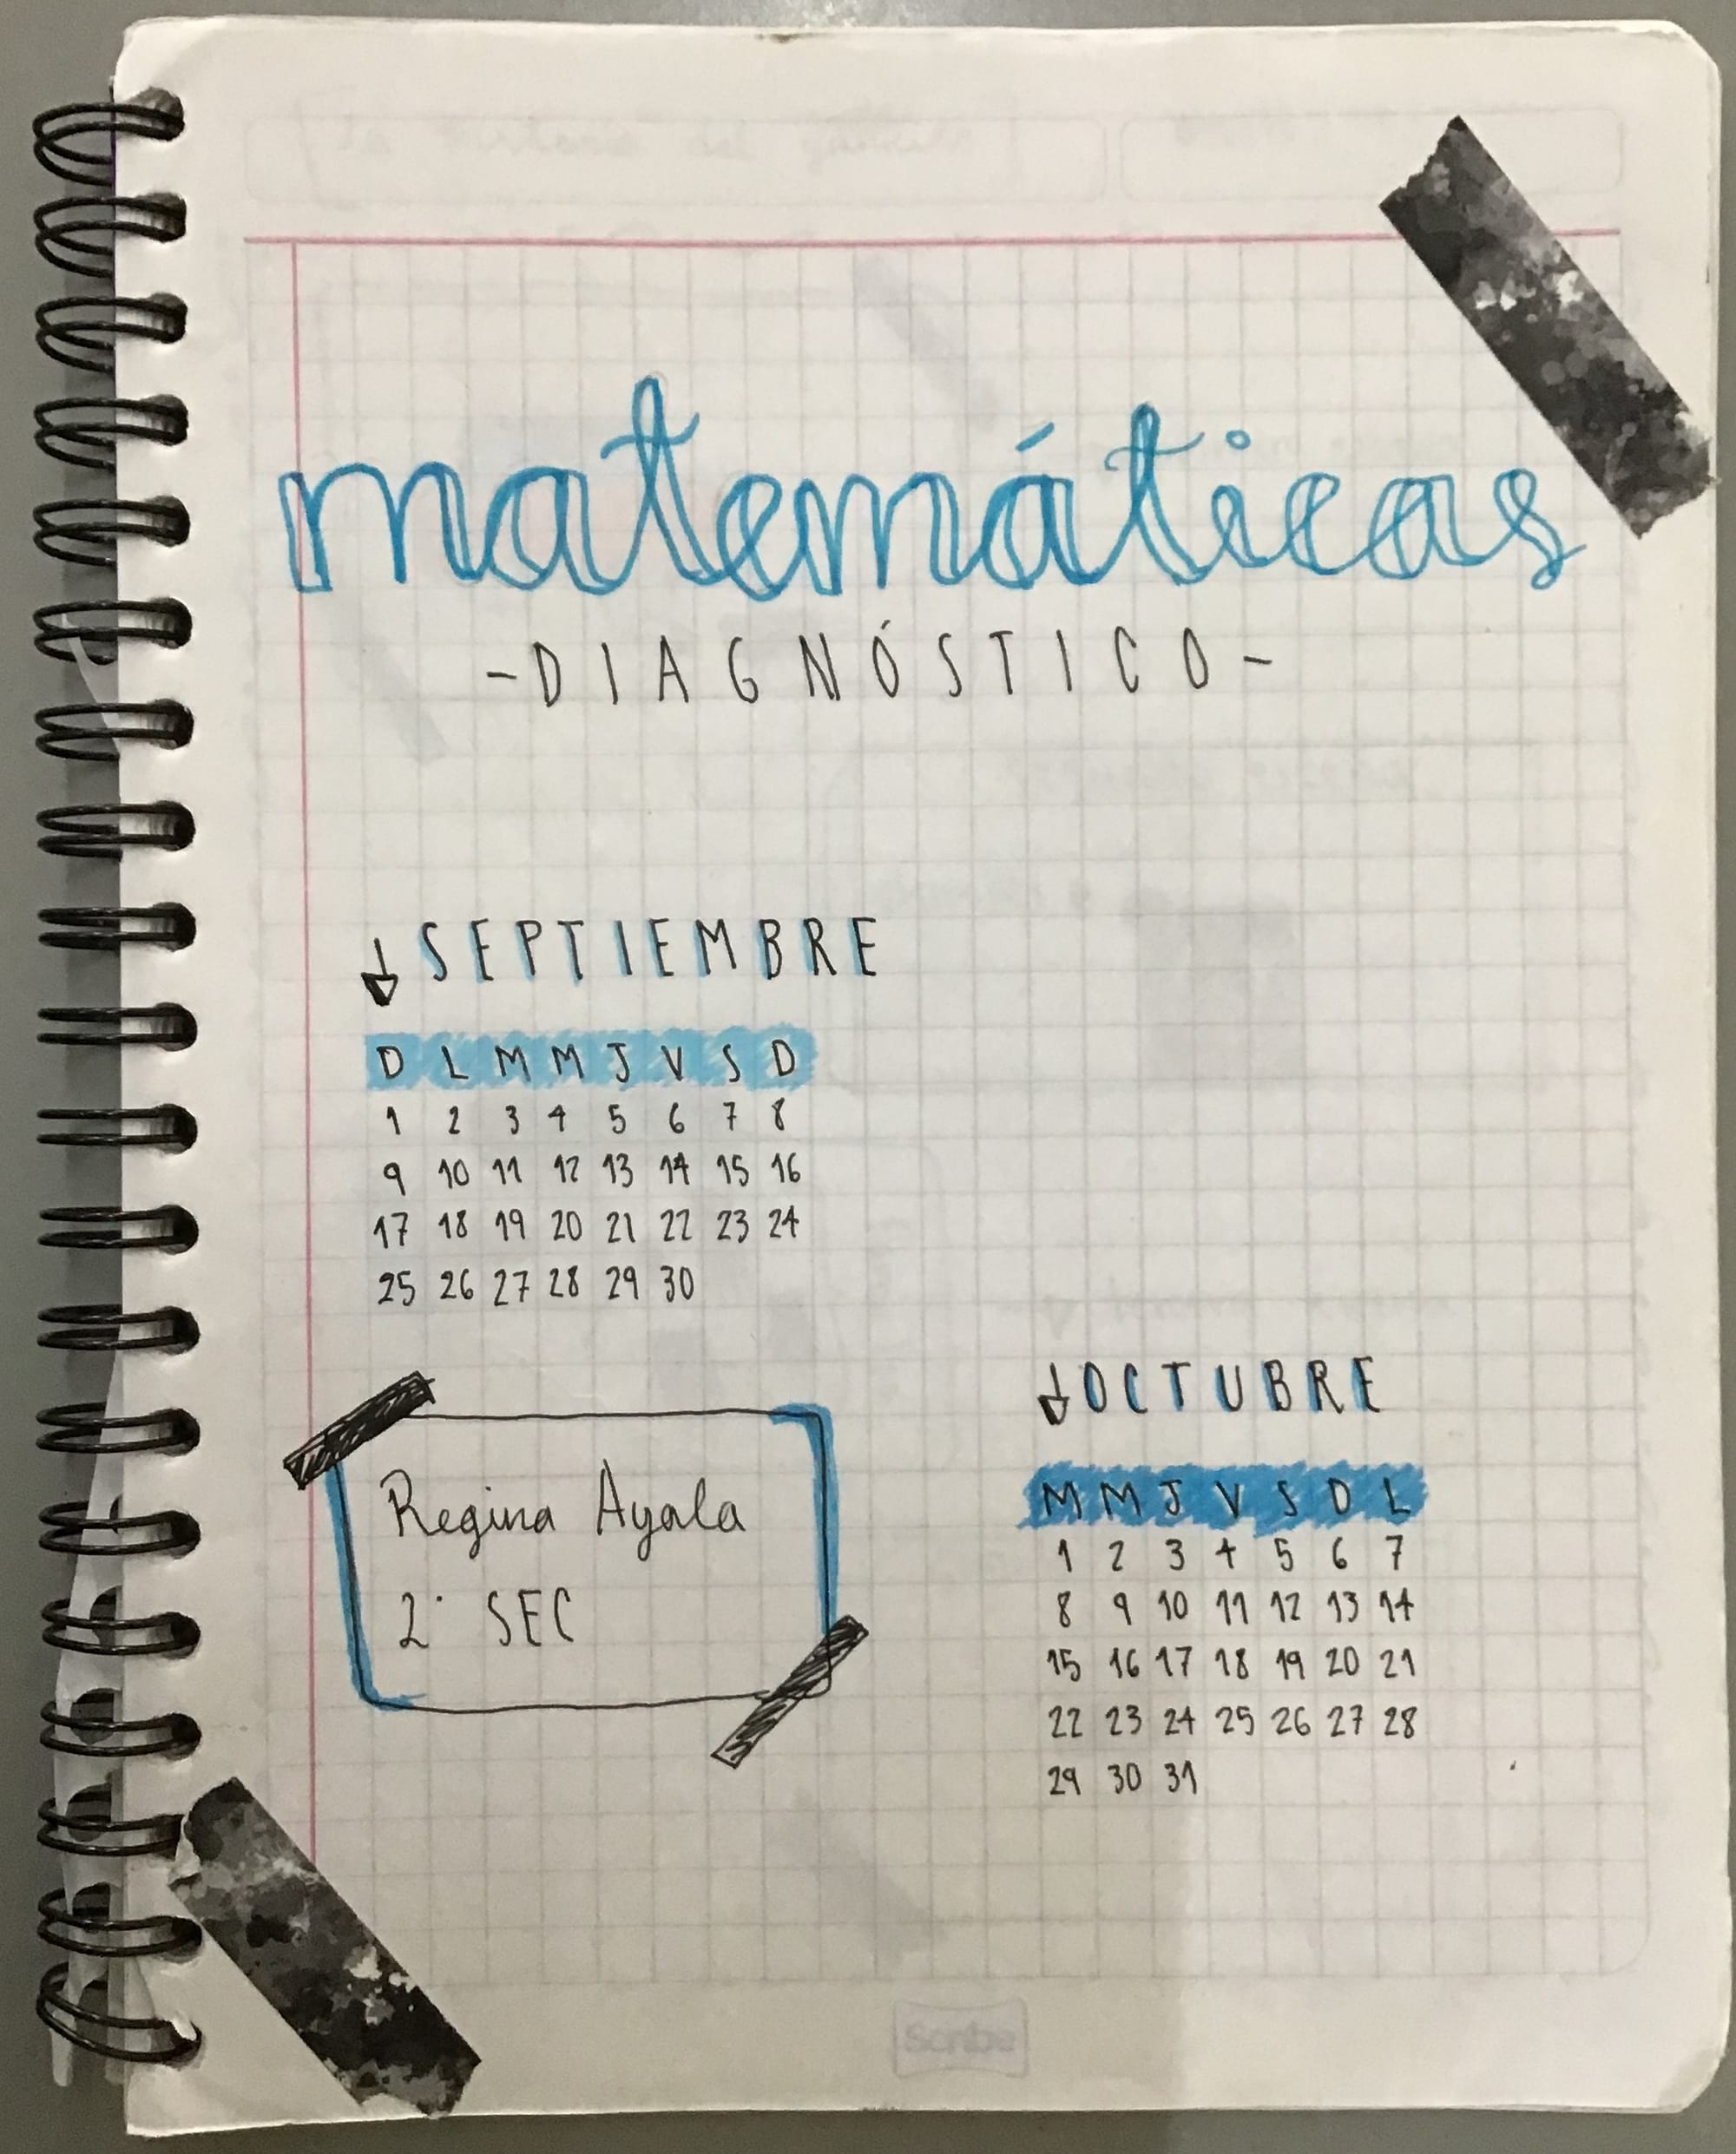 matemáticas
-DIAGNÓSTICO-
SEPTIEMBRE
D L M M J V S D
1 2 3 4 5 6 7 8
9 10 11 12 13 14 15 16
17 18 19 20 21 22 23 24
25 26 27 28 29 30
Regina Ayala
2° SEC
OCTUBRE
M M J V S D L
1 2 3 4 5 6 7
8 9 10 11 12 13 14
15 16 17 18 19 20 21
22 23 24 25 26 27 28
29 30 31
Scribe